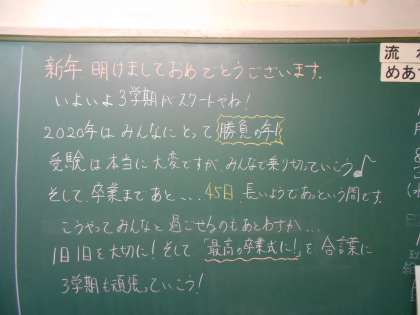 新年 明けましておめでとうございます。
いよいよ3学期がスタートやね!
2020年は みんなにとって 勝負の年!
受験は本当に大変ですが、みんなで乗り切っていこう♪
そして、卒業まであと... 45日. 長いようであっという間です。
こうやってみんなと過ごせるのもあとわずか...
1日1日を大切に! そして「最高の卒業式に!」を 合言葉に
3学期も頑張っていこう!
流
めあ